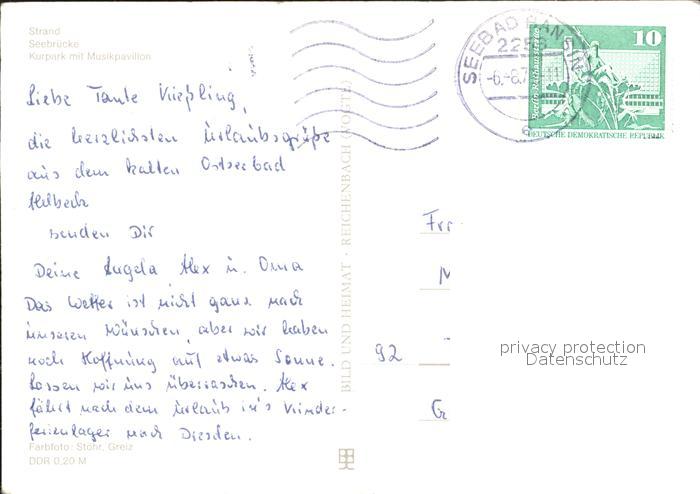 Strand
Seebrücke
Kurpark mit Musikpavillon
Liebe Tante Kießling,
die herzlichsten Urlaubsgrüße
aus dem kalten Ostseebad
senden Dir
Deine Angela Alex u. Oma
Das Wetter ist nicht ganz nach
unseren Wünschen, aber wir haben
noch Hoffnung auf etwas Sonne.
Lassen wir uns überraschen. Alex
fährt nach dem Urlaub in's Kinder-
ferienlager nach Dresden.
Farbfoto: Stöhr, Greiz
DDR 0,20 M
BILD UND HEIMAT · REICHENBACH (VOGTL)
SEEBAD BANSIN
-6.-8.7
10
Berlin, Rathausstraße
DEUTSCHE DEMOKRATISCHE REPUBLIK
Frr
M
92
G
privacy protection
Datenschutz